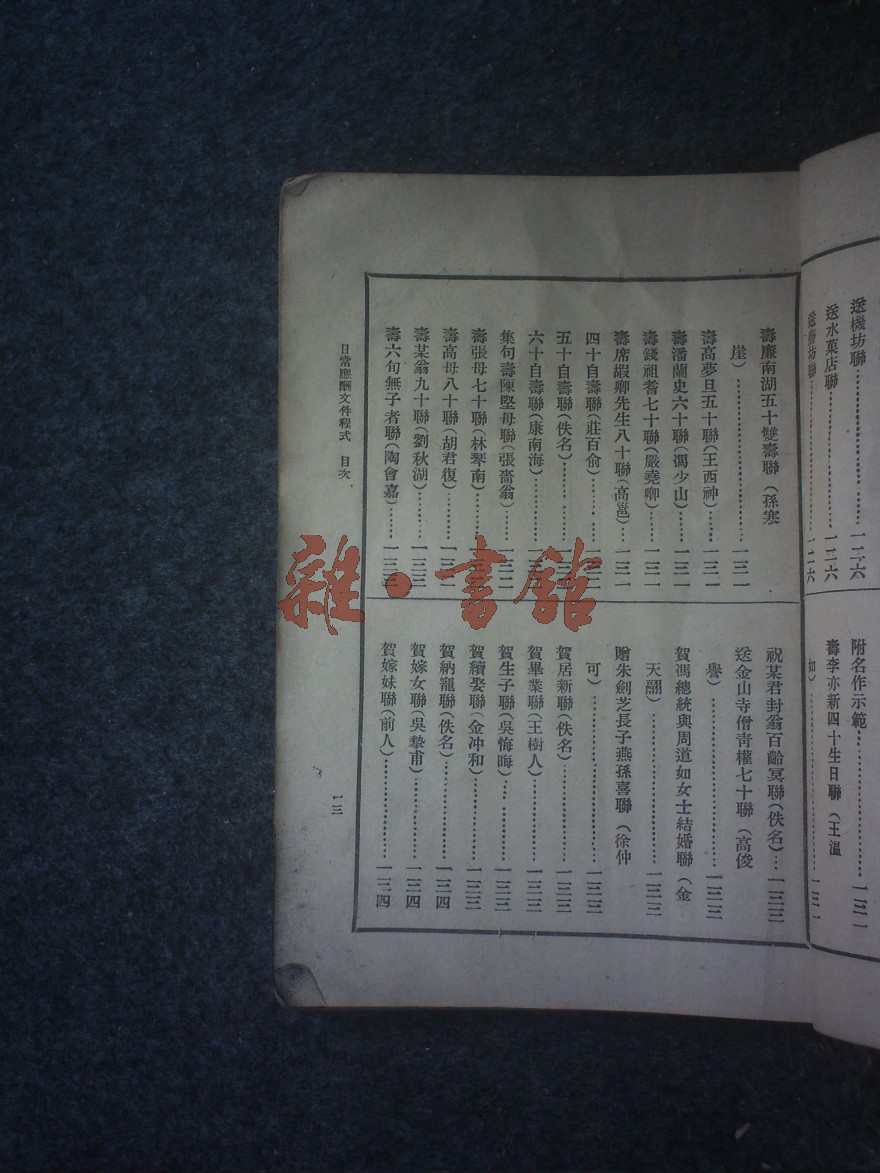 送機坊聯……………一二六
送水菓店聯…………一二六
坊聯……………一二六
附名作示範……………一三一
壽李亦新四十生日聯（王溫
如）……………一三一
壽廉南湖五十雙壽聯（孫寒
崖）……………一三一
壽高夢旦五十聯（王西神）…一三一
壽潘蘭史六十聯（馮少山）…一三一
壽錢祖耆七十聯（嚴堯卿）…一三一
壽席嘏卿先生八十聯（高邕）…一三一
四十自壽聯（莊百俞）……
五十自壽聯（佚名）………
六十自壽聯（康南海）……
集句壽陳堅母聯（張嗇翁）…一三二
壽張母七十聯（林琴南）……
壽高母八十聯（胡君復）……
壽某翁九十聯（劉秋湖）……一三三
壽六旬無子者聯（陶會嘉）……一三三
祝某君封翁百齡冥聯（佚名）…一三三
送金山寺僧靑權七十聯（高俊
譽）……………一三三
賀馮總統與周道如女士結婚聯（金
天翮）……………一三三
贈朱劍芝長子燕孫喜聯（徐仲
可）……………一三三
賀居新聯（佚名）…………一三三
賀畢業聯（王樹人）………一三三
賀生子聯（吳悔晦）………一三三
賀續娶聯（金冲和）………一三三
賀納寵聯（佚名）…………一三四
賀嫁女聯（吳摯甫）………一三四
賀嫁妹聯（前人）…………一三四
日常應酬文件程式　目次
一三
雜·書館